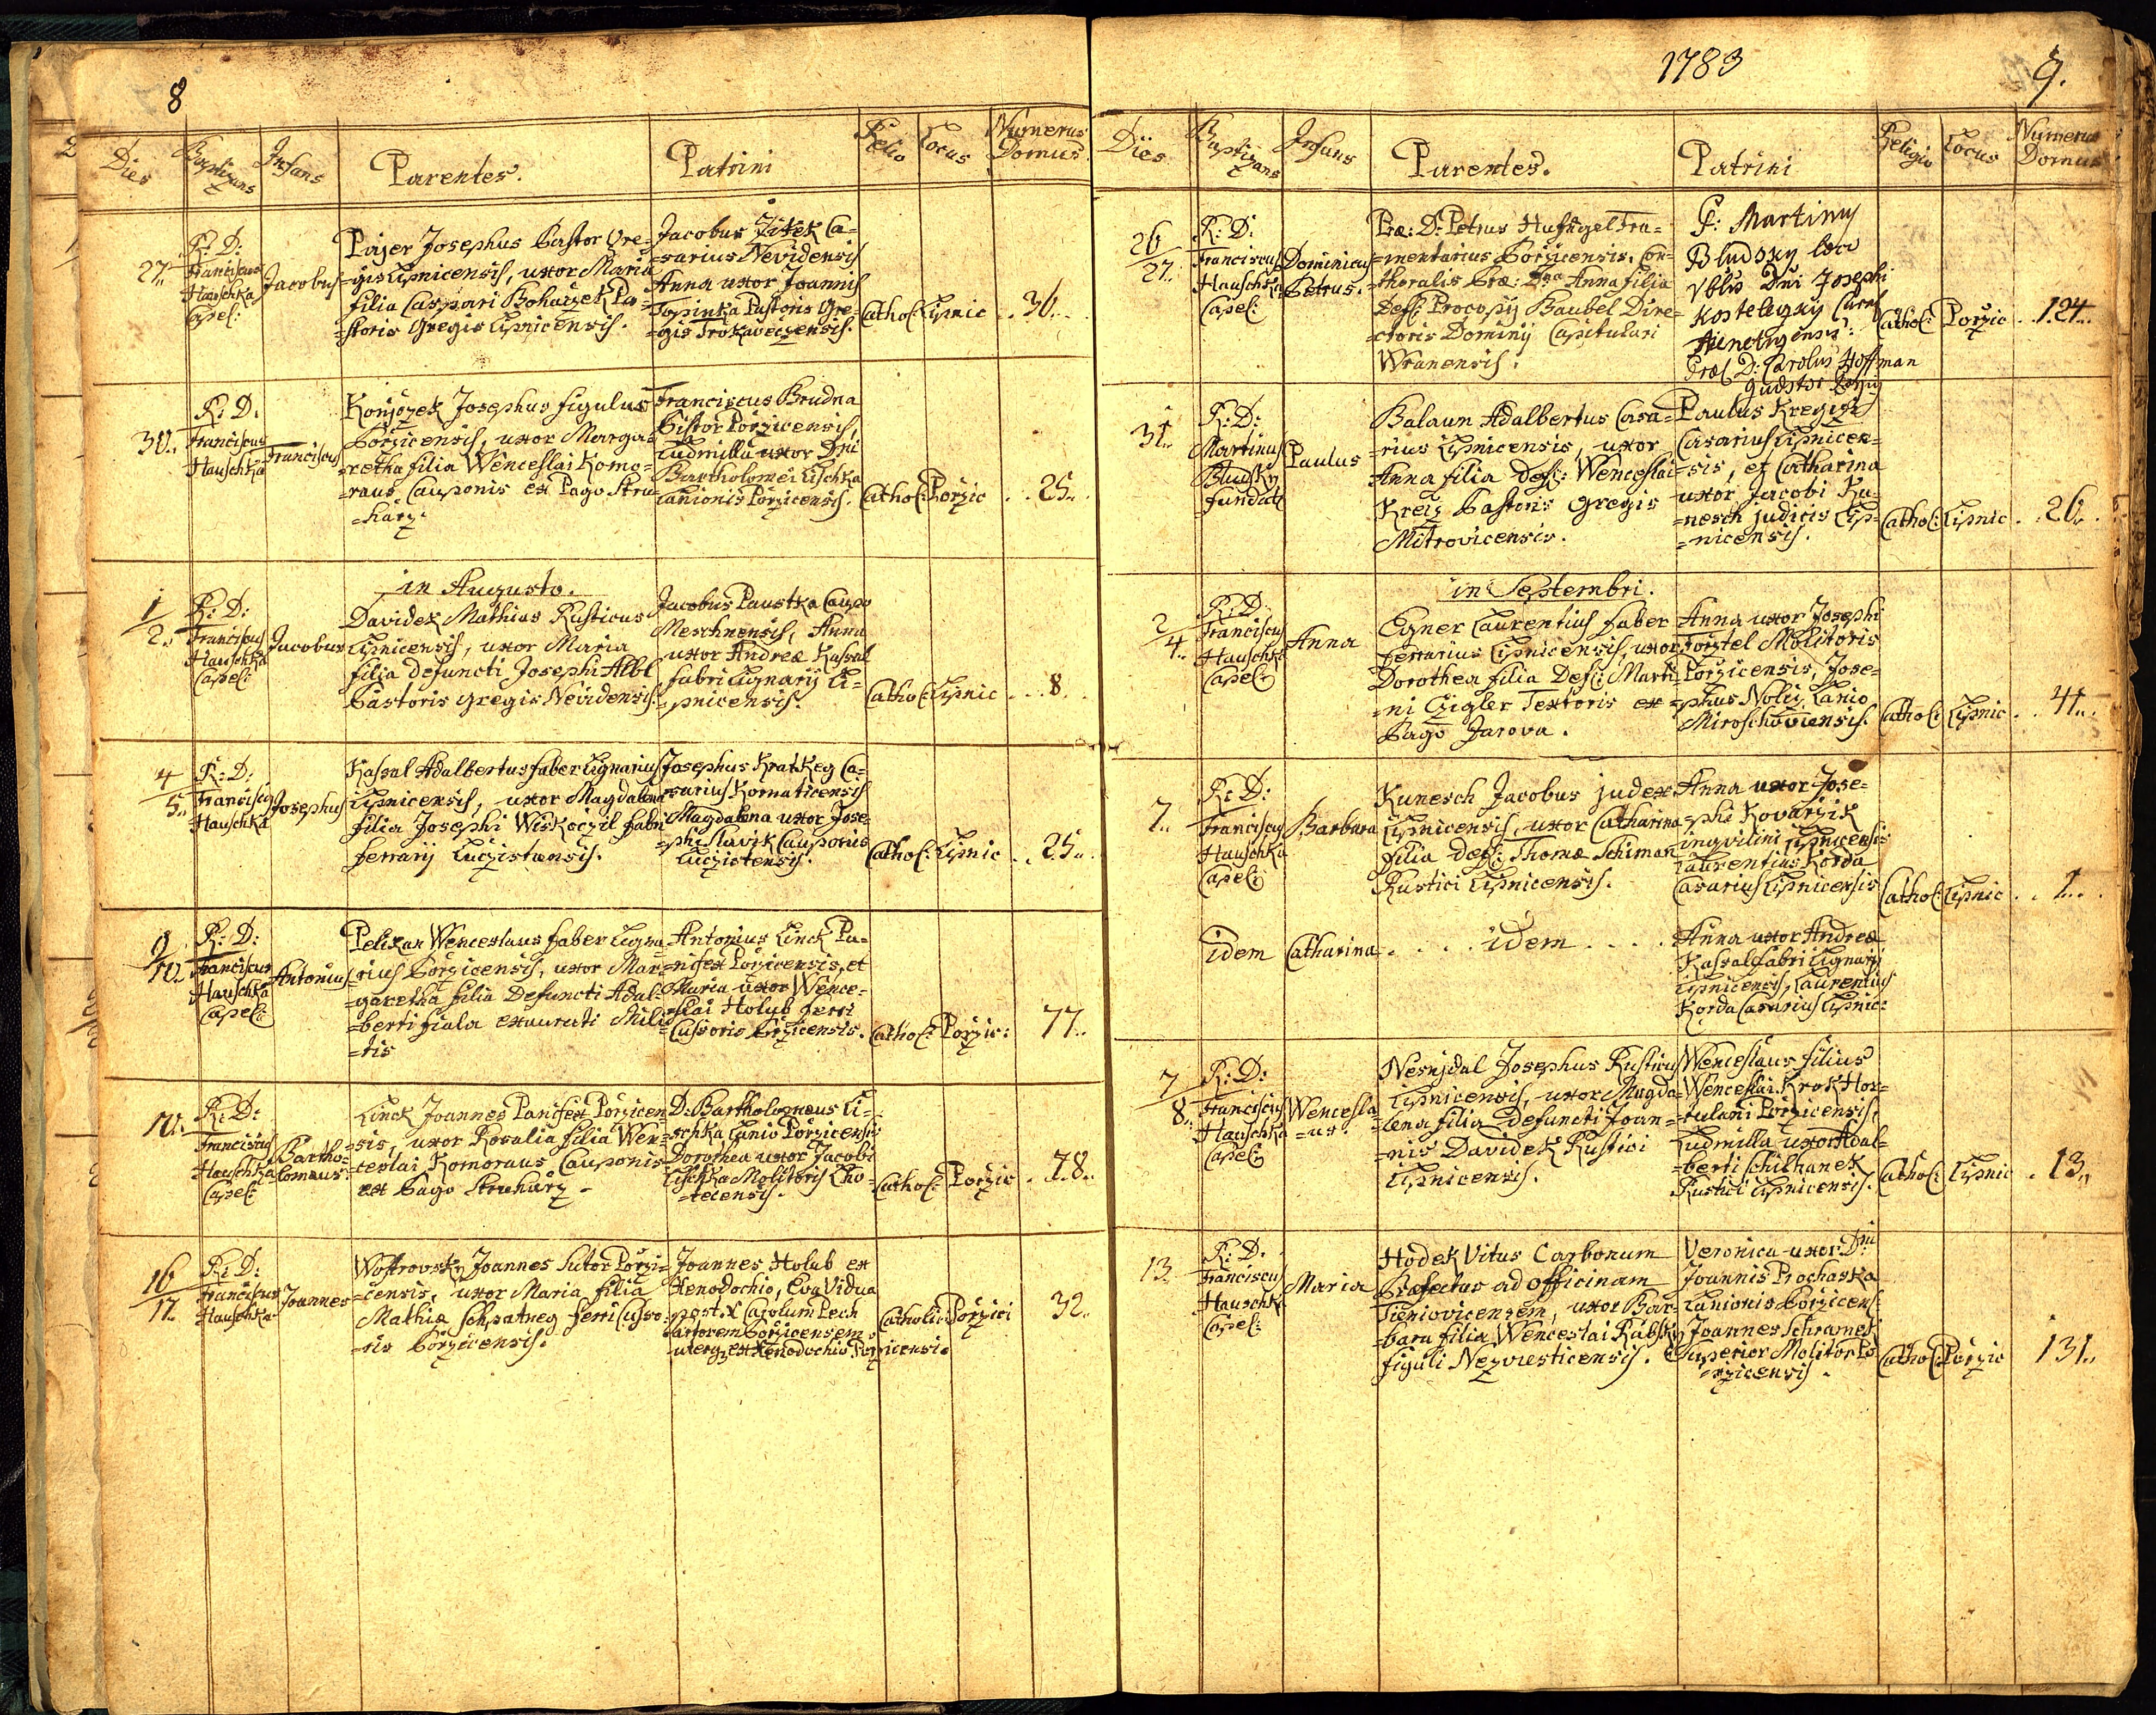 8
Dies Baptizans Infans Parentes. Patrini Relio Locus Numerus Domus
27.. R: D: Franciscus Hauschka Capel: Jacobus
Pajer Josephus Pastor Gre=
=gis Lipnicensis, uxor Maria
filia Caspari Boharzek Pa=
=storis Gregis Lipnicensis.
Jacobus Zitek Ca=
=sarius Nevidensis
Anna uxor Joannis
Topinka Pastoris Gre=
=gis Trokaveczensis.
Cathol: Lipnic .. 36...
30.. R: D: Franciscus Hauschka Franciscus
Josephus figulus
Porzicensis, uxor Marga=
=retha filia Wenceslai Komo=
=raus Cauponis ex Pago Stru=
=harz.
Franciscus Brudna
Pistor Porzicensis,
Ludmilla uxor Dni
Bartholomei Lischka
Lanionis Porzicensis.
Cathol: Porzic .. 25..
in Augusto.
1/2.. R: D: Franciscus Hauschka Capel: Jacobus
Davidek Mathias Rusticus
Lipnicensis, uxor Maria
filia defuncti Josephi Albl
Pastoris gregis Nevidensis.
Jacobus Paustka Caupo
Meschnensis, Anna
uxor Andreæ Kassal
fabri Lignarij Li=
=pnicensis.
Cathol: Lipnic ... 8.
4/5.. R: D: Franciscus Hauschka Josephus
Kassal Adalbertus faber Lignarius
Lipnicensis, uxor Magdalena
filia Josephi Wiskoczil fabri
ferrarij Luczistensis.
Josephus Kratkeg Ca=
=sarius Kornaticensis
Magdalena uxor Jose=
=phi Slavik Cauponis
Luczistensis.
Cathol: Lipnic .. 25..
9/10.. R: D: Franciscus Hauschka Capel: Antonius
Pelikan Wenceslaus faber Ligna=
=rius Porzicensis, uxor Mar=
=garetha filia Defuncti Adal=
=berti fiala exaurati Mili=
=tis
Antonius Linck Pa=
=nifex Porzicensis, et
Maria uxor Wence=
=slai Holub ferri
Cussoris Porzicensis.
Cathol: Porzic: 77..
10.. R: D: Franciscus Hauschka Capel: Bartho=
=lomæus
Linck Joannes Panifex Porzicen=
=sis, uxor Rosalia filia Wen=
=ceslai Komoraus Cauponis
ex Pago Struharz.
D: Bartholomæus Li=
=schka Lanio Porzicensis
Dorothea uxor Jacobi
Lischka Molitoris Cho=
=tecensis.
Cathol: Porzic . 78..
16/17.. R: D: Franciscus Hauschka Joannes
Wostrovsky Joannes Sutor Porzi=
=censis, uxor Maria filia
Mathiæ Schpatneg ferri Cusso=
=ris Porzicensis.
Joannes Holub ex
Xenodochio, Eva Vidua
post Carolum Pech
Porzicensem,
ex Xenodochio Porzicensi.
Catholic: Porzici 32..
1783
9.
Dies Baptizans Infans Parentes. Patrini Religio Locus Numerus Domus
26/27.. R: D: Franciscus Hauschka Capel: Dominicus
Petrus.
Præ: D: Petrus Hufnagel Fru=
=mentarius Porzicensis, Con=
=thoralis Præ: Dna Anna filia
Def: Procopij Baubel Dire=
=ctoris Dominij Capitulari
Wranensis.
P: Martiny
Bludsky loco
Dni Josephi
Kosteleczky

Præ: D: Carolus Hoffman
Cathol: Porzic .. 124..
31.. R: D: Martinus Bludsky fundat: Paulus
Balaun Adalbertus Casa=
=rius Lipnicensis, uxor
Anna filia Def: Wenceslai
Kreiz Pastoris Gregis
Mitrovicensis.
Paulus Kregczi
Casarius Lipnicen=
=sis, et Catharina
uxor Jacobi Ku=
=nesch judicis Lip=
=nicensis.
Cathol: Lipnic . 26..
in Septembri.
2/4.. R: D: Franciscus Hauschka Capel: Anna
Egner Laurentius faber
ferrarius Lipnicensis, uxor
Dorothea filia Def: Marti=
=ni Czigler Textoris ex
Pago Jarova.
Anna uxor Josephi
Molitoris
Porzicensis, Jose=
=phus Nolij Lanio
Miroschoviensis.
Cathol: Lipnic .. 41..
7. R: D: Franciscus Hauschka Capel: Barbara
Kunesch Jacobus judex
Lipnicensis, uxor Catharina
filia def: Thomæ Schiman
Rustici Lipnicensis.
Anna uxor Jose=
=phi Kovarzik
inqvilini Lipnicensis
Laurentius Korda
Casarius Lipnicensis
Cathol: Lipnic .. 1...
idem Catharina . . . . idem . . . .
Anna uxor Andreæ
Kassal fabri Lignarij
Lipnicensis, Laurentius
Korda Casarius Lipnic:
7/8.. R: D: Franciscus Hauschka Capel: Wencesla
=us.
Nesnjdal Josephus Rusticus
Lipnicensis, uxor Magda=
=lena filia defuncti Joan=
=nis Davidek Rustici
Lipnicensis.
Wenceslaus filius
Wenceslai Krok Hor=
=tulani Porzicensis,
Ludmilla uxor Adal=
=berti Schilhanek
Rustici Lipnicensis.
Cathol: Lipnic . 13..
13. R: D. Franciscus Hauschka Capel: Maria
Hodek Vitus Carbonum
Præfectus ad officinam
Tieniovicensem, uxor Bar=
=bara filia Wenceslai Rabsky
figuli Nezvesticensis.
Veronica uxor Dni
Joannis Prochaska
Lanionis Porzicens:
Joannes Schramek
Superior Molitor Po=
=rzicensis.
Cathol: Porzic 131..